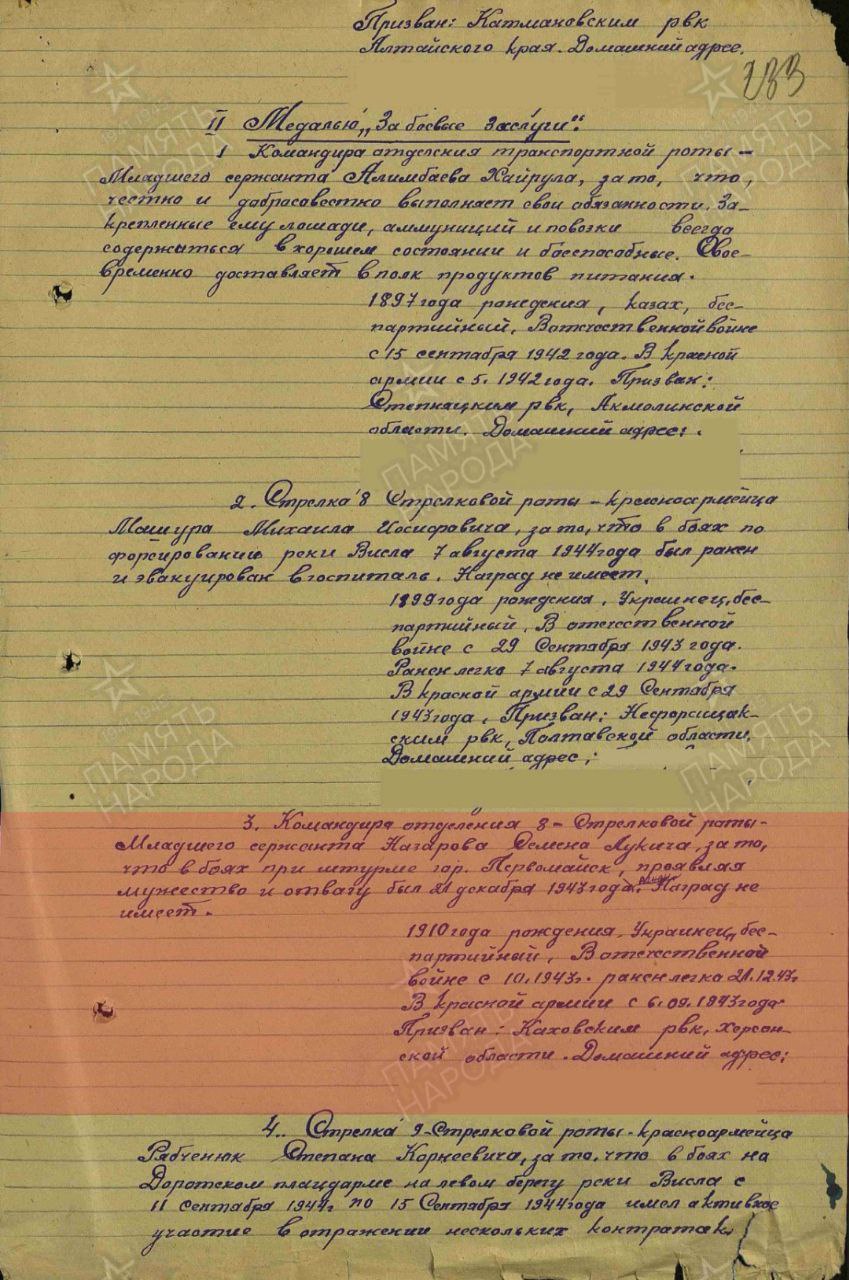 Призван: Катмановским рвк
Алтайского края. Домашний адрес.
233
II Медалью „За боевые заслуги":
1 Командира отделения транспортной роты –
Младшего сержанта Алимбаева Хайрула, за то, что,
честно и добрасовестно выполняет свои обязанности. За-
крепленные ему лошади, аммуниций и повозки всегда
содержаться в хорошем состоянии и боеспособные. Свое-
временно доставляет в полк продуктов питания.
1897 года рождения, казах, бес-
партийный, В отечественной войне
с 15 сентября 1942 года. В красной
армии с 5. 1942 года. Призван:
Степняцким рвк, Акмолинской
области. Домашний адрес: .
2. Стрелка 8 Стрелковой роты – красноармейца
Машура Михаила Иосифовича, за то, что в боях по
форсированию реки Висла 7 августа 1944 года был ранен
и эвакуирован в госпиталь. Наград не имеет.
1899 года рождения, Украинец, бес-
партийный, В отечественной
войне с 29 Сентября 1943 года.
Ранен легко 7 августа 1944 года.
В красной армии с 29 Сентября
1943 года, Призван: Нефорощан-
ским рвк, Полтавской области.
Домашний адрес:
3. Командира отделения 8 – Стрелковой роты –
Младшего сержанта Назарова Семена Лукича, за то,
что в боях при штурме гор. Первомайск, проявляя
мужество и отвагу был 21 декабря 1943 года ранен. Наград не
имеет.
1910 года рождения, Украинец, бес-
партийный, В отечественной
войне с 10.1943г. ранен легко 21.12.43г
В красной армии с 6.09.1943 года
Призван: Каховским рвк, Херсон-
ской области. Домашний адрес:
4. Стрелка 9 – Стрелковой роты – красноармейца
Рябченюк Степана Корнеевича, за то, что в боях на
плацдарме на левом берегу реки Висла с
11 сентября 1944г по 15 Сентября 1944 года имел активное
участие в отражении нескольких контратак
ПАМЯТЬ
НАРОДА